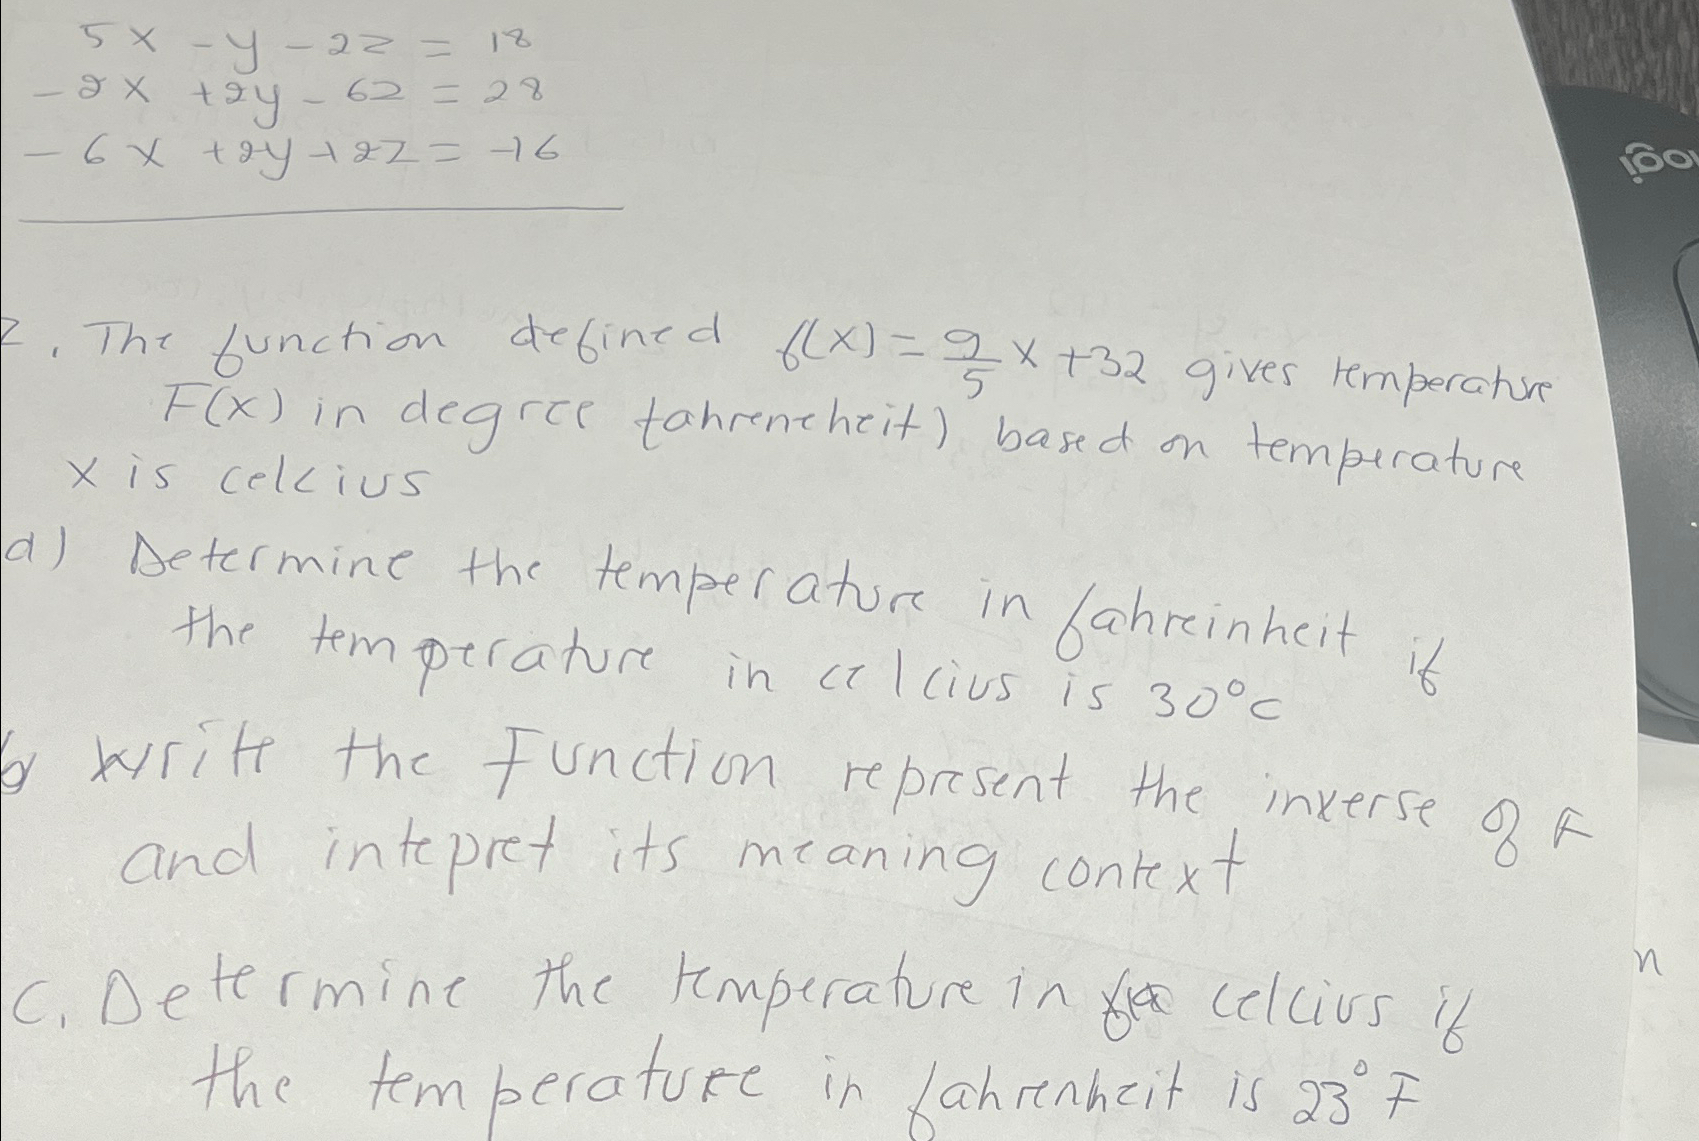 5x - y - 2z = 18
-2x + 2y - 6z = 28
-6x + 2y + 2z = -16
2. The function defined f(x) = 9/5 x + 32 gives temperature
F(x) in degree fahreneheit) based on temperature
x is celcius
a) Determine the temperature in fahreinheit if
the temperature in celcius is 30°c
b) write the Function represent the inverse of F
and intepret its meaning context
C. Determine the temperature in celcius if
the temperature in fahrenheit is 23°F
logi
n